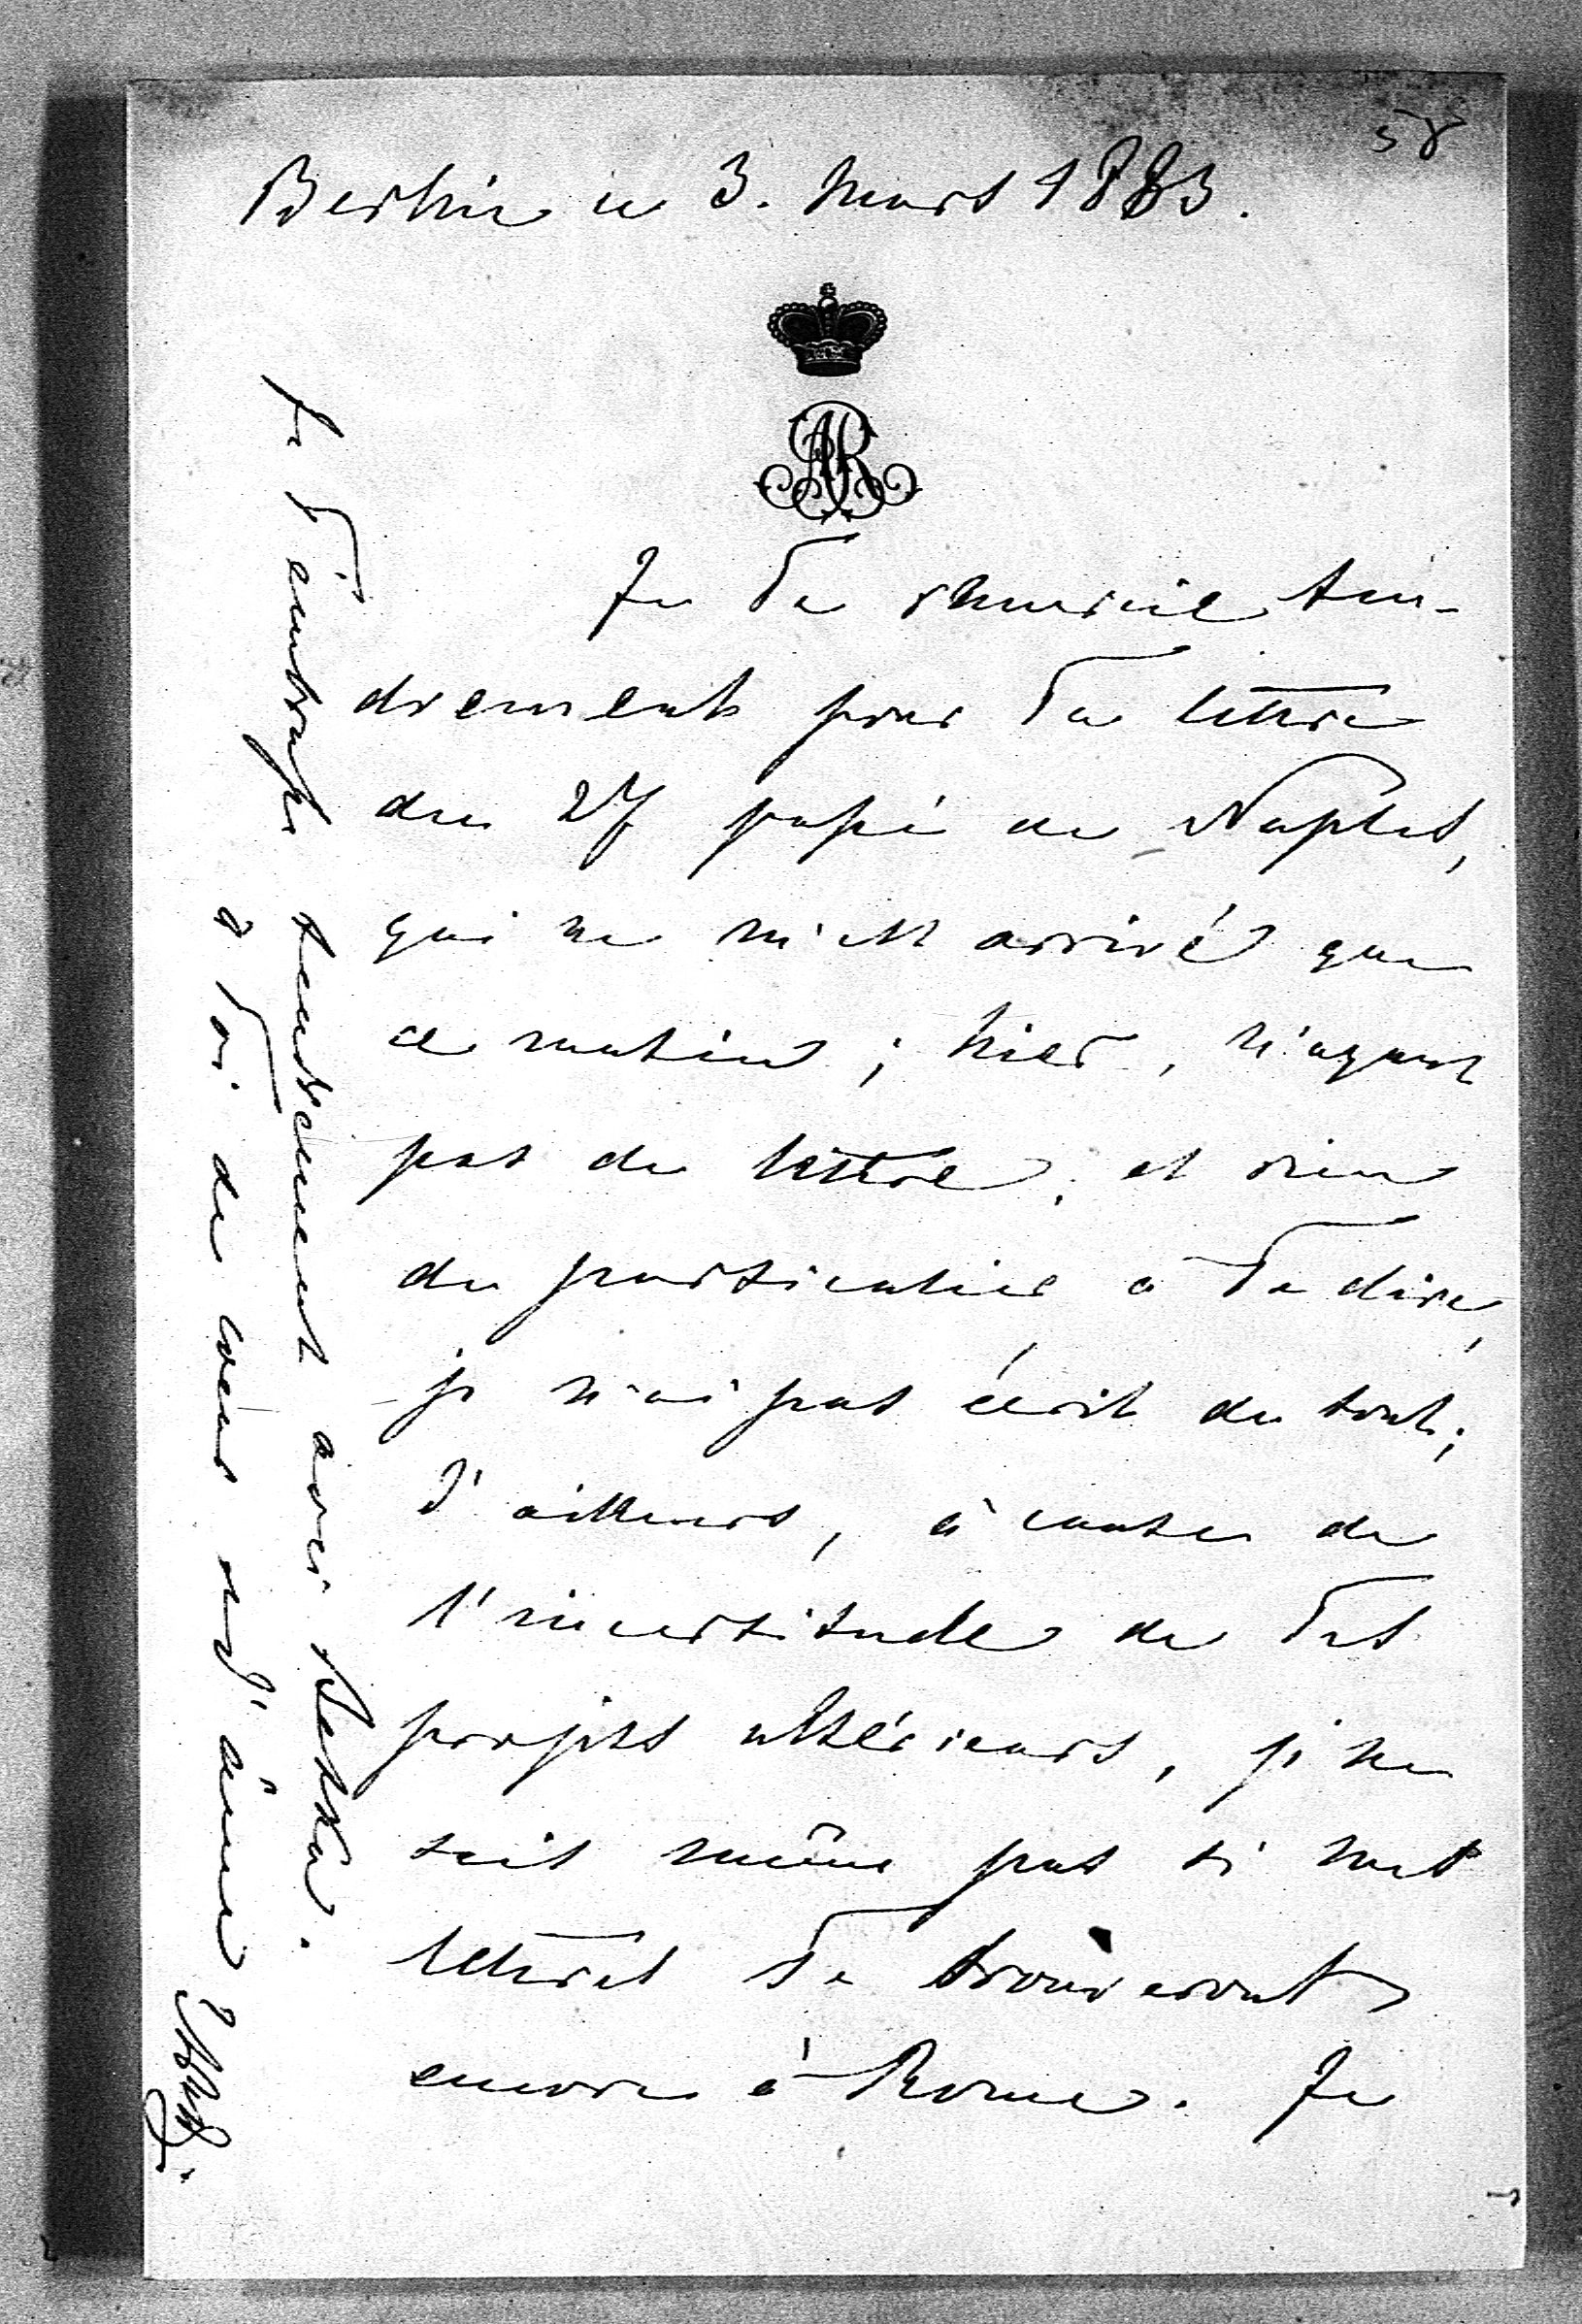 58
Berlin le 3. Mars 1883.
AR
Je Te remercie ten-
drement pour Ta lettre
du 27 passé de Naples,
qui ne m'est arrivé que
ce matin; hier, n'ayant
pas de lettre, et rien
de particulier à Te dire,
je n'ai pas écrit du tout;
d'ailleurs, à cause de
l'incertitude de Tes
projets ultérieurs, je ne
sais même pas si mes
lettres Te trouveront
encore à Rome. Je
Je T'embrasse tendrement avec
à Toi de cœur et d'âme